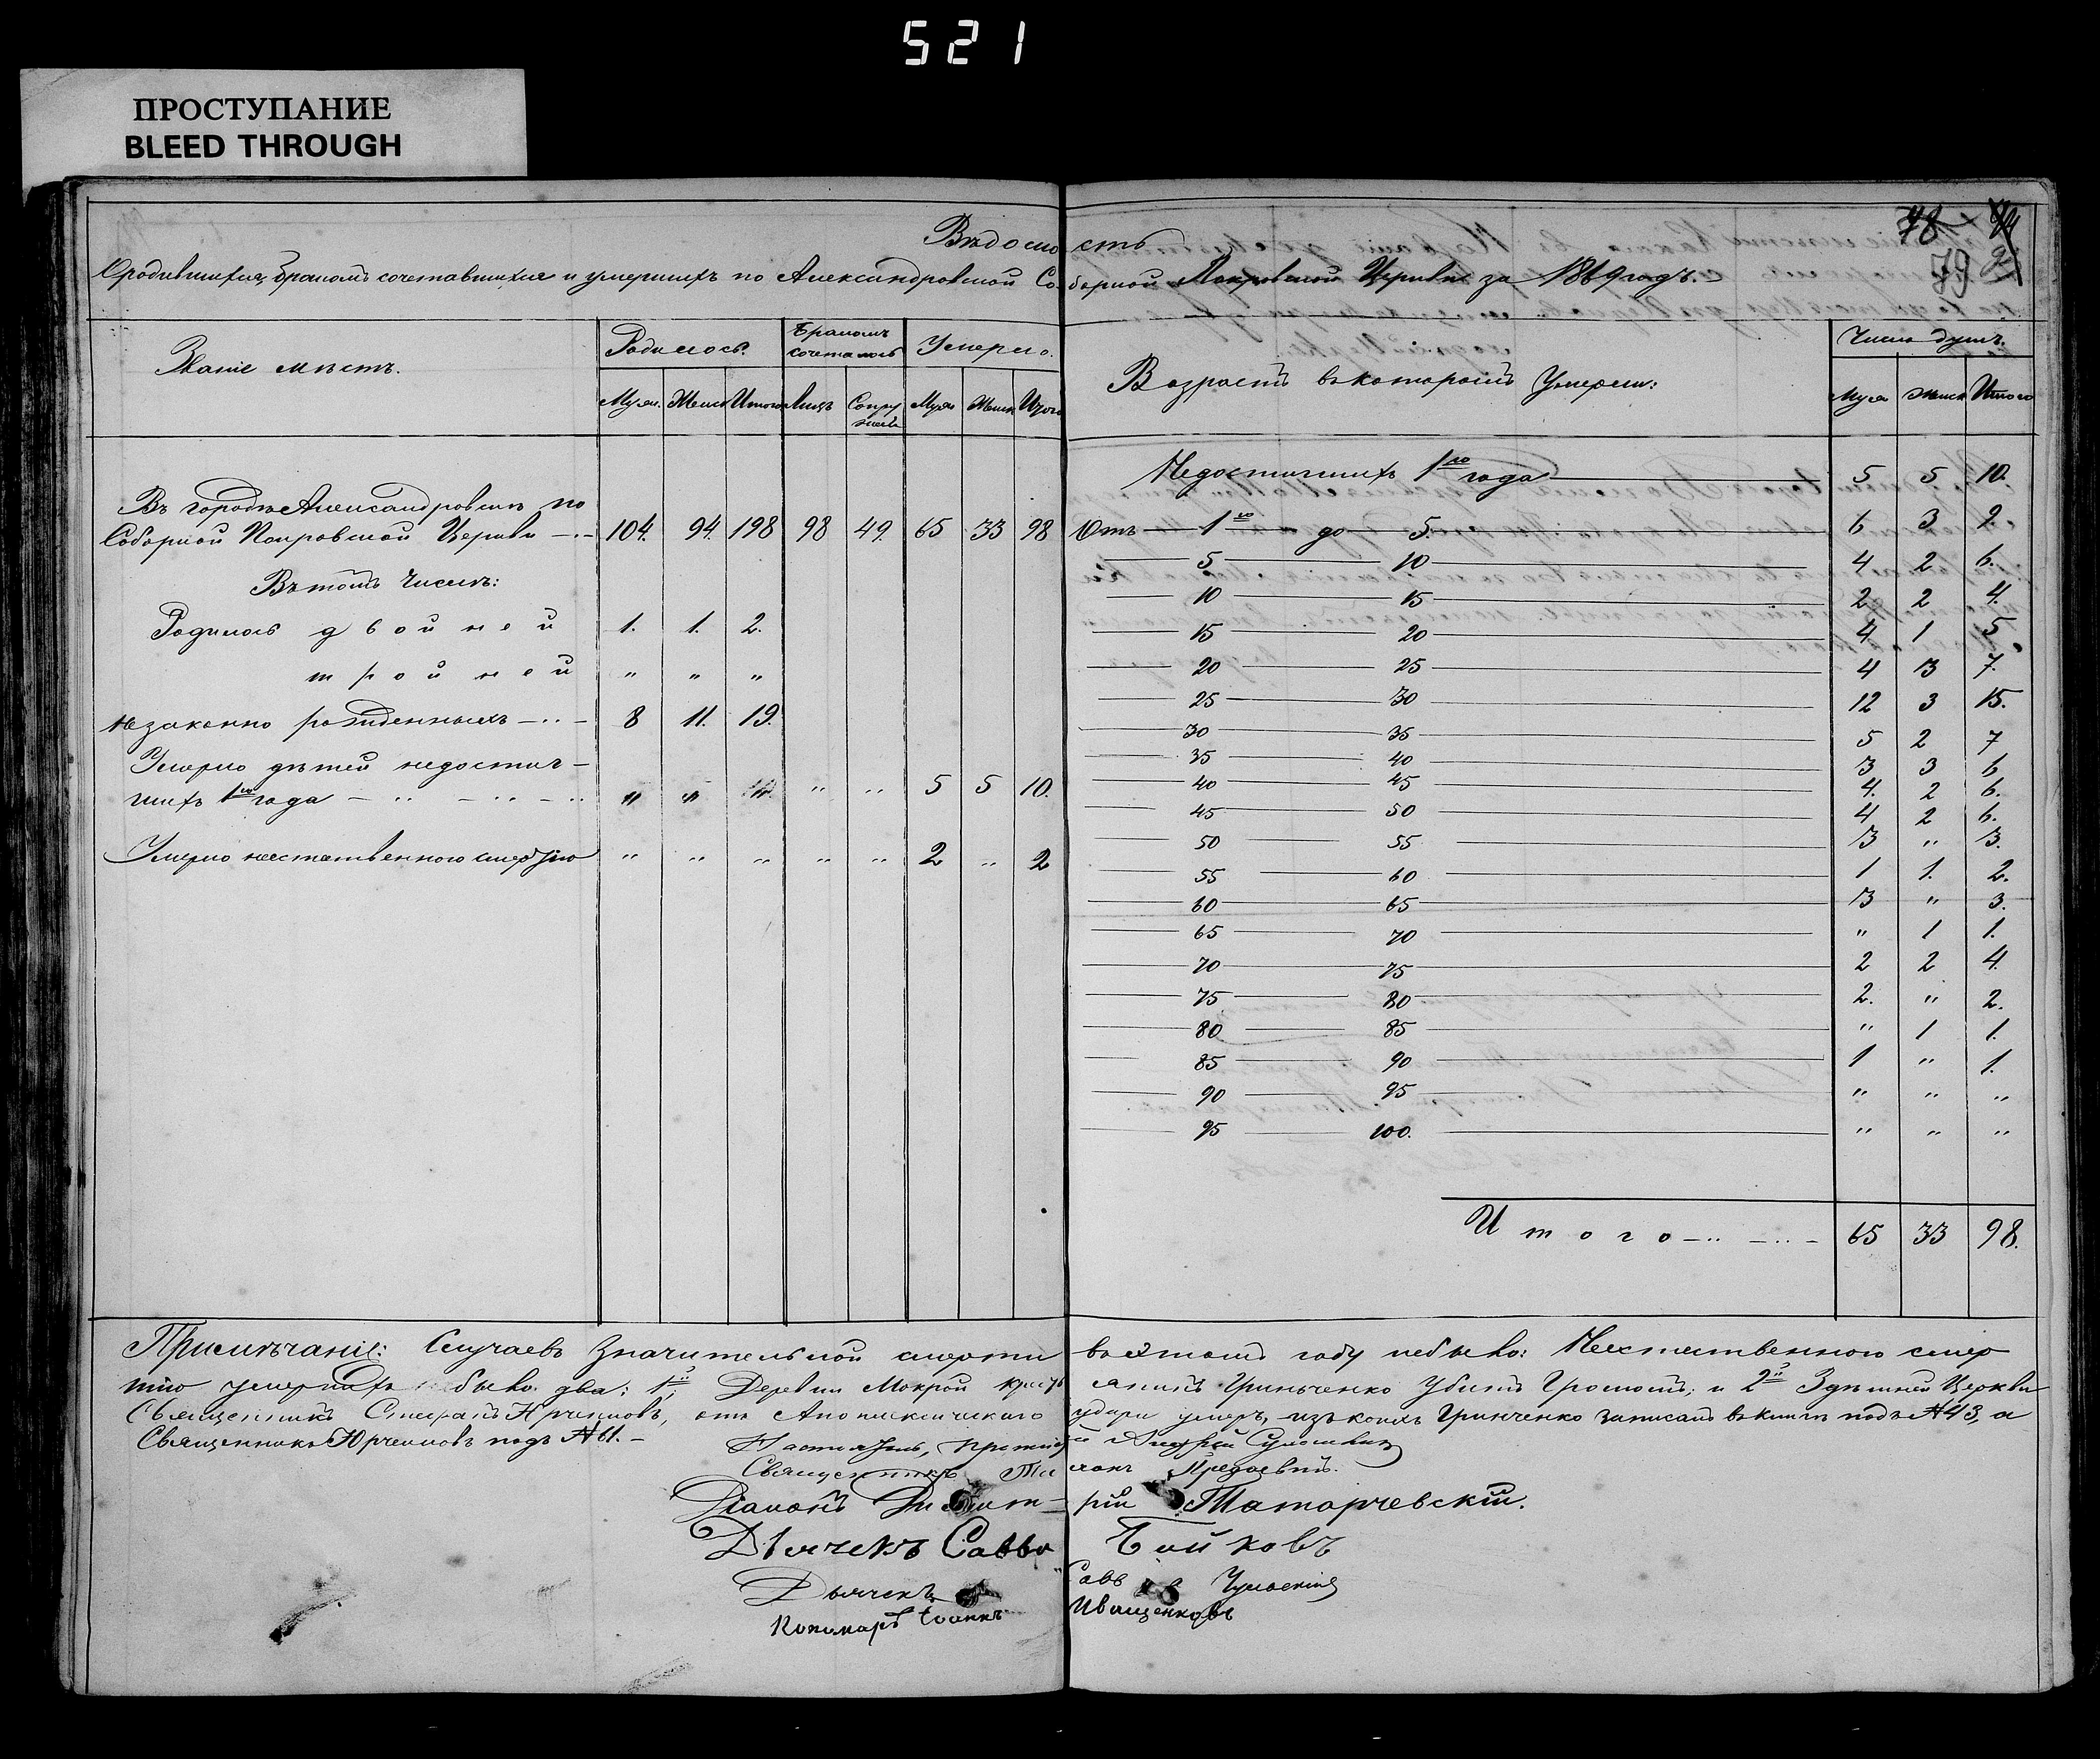 521
ПРОСТУПАНИЕ
BLEED THROUGH
78 74
79
Вѣдомость
О родившихся, бракомъ сочетавшихся и умершихъ по Александровской Соборной Покровской Церкви за 1869 годъ.
Званіе мѣстъ. Родилось. Бракомъ сочеталось Умерло. Возрастъ въ которомъ Умерли: Число душъ.
Муж. Женск Итого Лицъ Супружествъ Муж Женск Итого Муж Женск Итого
Въ городѣ Александровскѣ по
Соборной Покровской Церкви 104. 94. 198 98 49. 65 33 98
Въ томъ Числѣ:
Родилось двойней 1. 1. 2.
тройней " " "
незаконно рожденныхъ 8 11. 19.
Умерло дѣтей недостиг-
шихъ 1го года " " " " " 5 5 10.
Умерло неестественною смертію " " " " " 2 " 2
Недостигшихъ 1го года 5 5 10.
Отъ 1го до 5. 6 3 9.
5 10 4 2 6.
10 15 2 2 4.
15 20 4 1 5
20 25 4 3 7.
25 30 12 3 15.
30 35 5 2 7
35 40 3 3 6
40 45 4. 2 6.
45 50 4 2 6.
50 55 3 " 3.
55 60 1 1. 2.
60 65 3 " 3.
65 70 " 1 1.
70 75 2 2 4.
75 80 2. " 2.
80 85 " 1 1.
85 90 1 " 1.
90 95 " " "
95 100. " " "
Итого 65 33 98.
Примѣчаніе: Случаевъ Значительной смерти въ этомъ году небыло: Неестественною смер
тію умершихъ было два: 1й Деревни Мокрой крестьянинъ Гриньченко Убитъ Громомъ; и 2й Здѣшней Церкви
Священникъ Стефанъ Юрченковъ, отъ Апоплексическаго удара умеръ, изъ коихъ Гринченко записанъ въ книгѣ подъ №43, а
Священникъ Юрченковъ подъ №61.
Настоятель, Протоіерей Андрей
Священникъ
Діаконъ Димитрій Татарчевскій.
Дьячекъ Савва Бойковъ
Дьячекъ
Пономарь Іоаннъ Иващенковъ